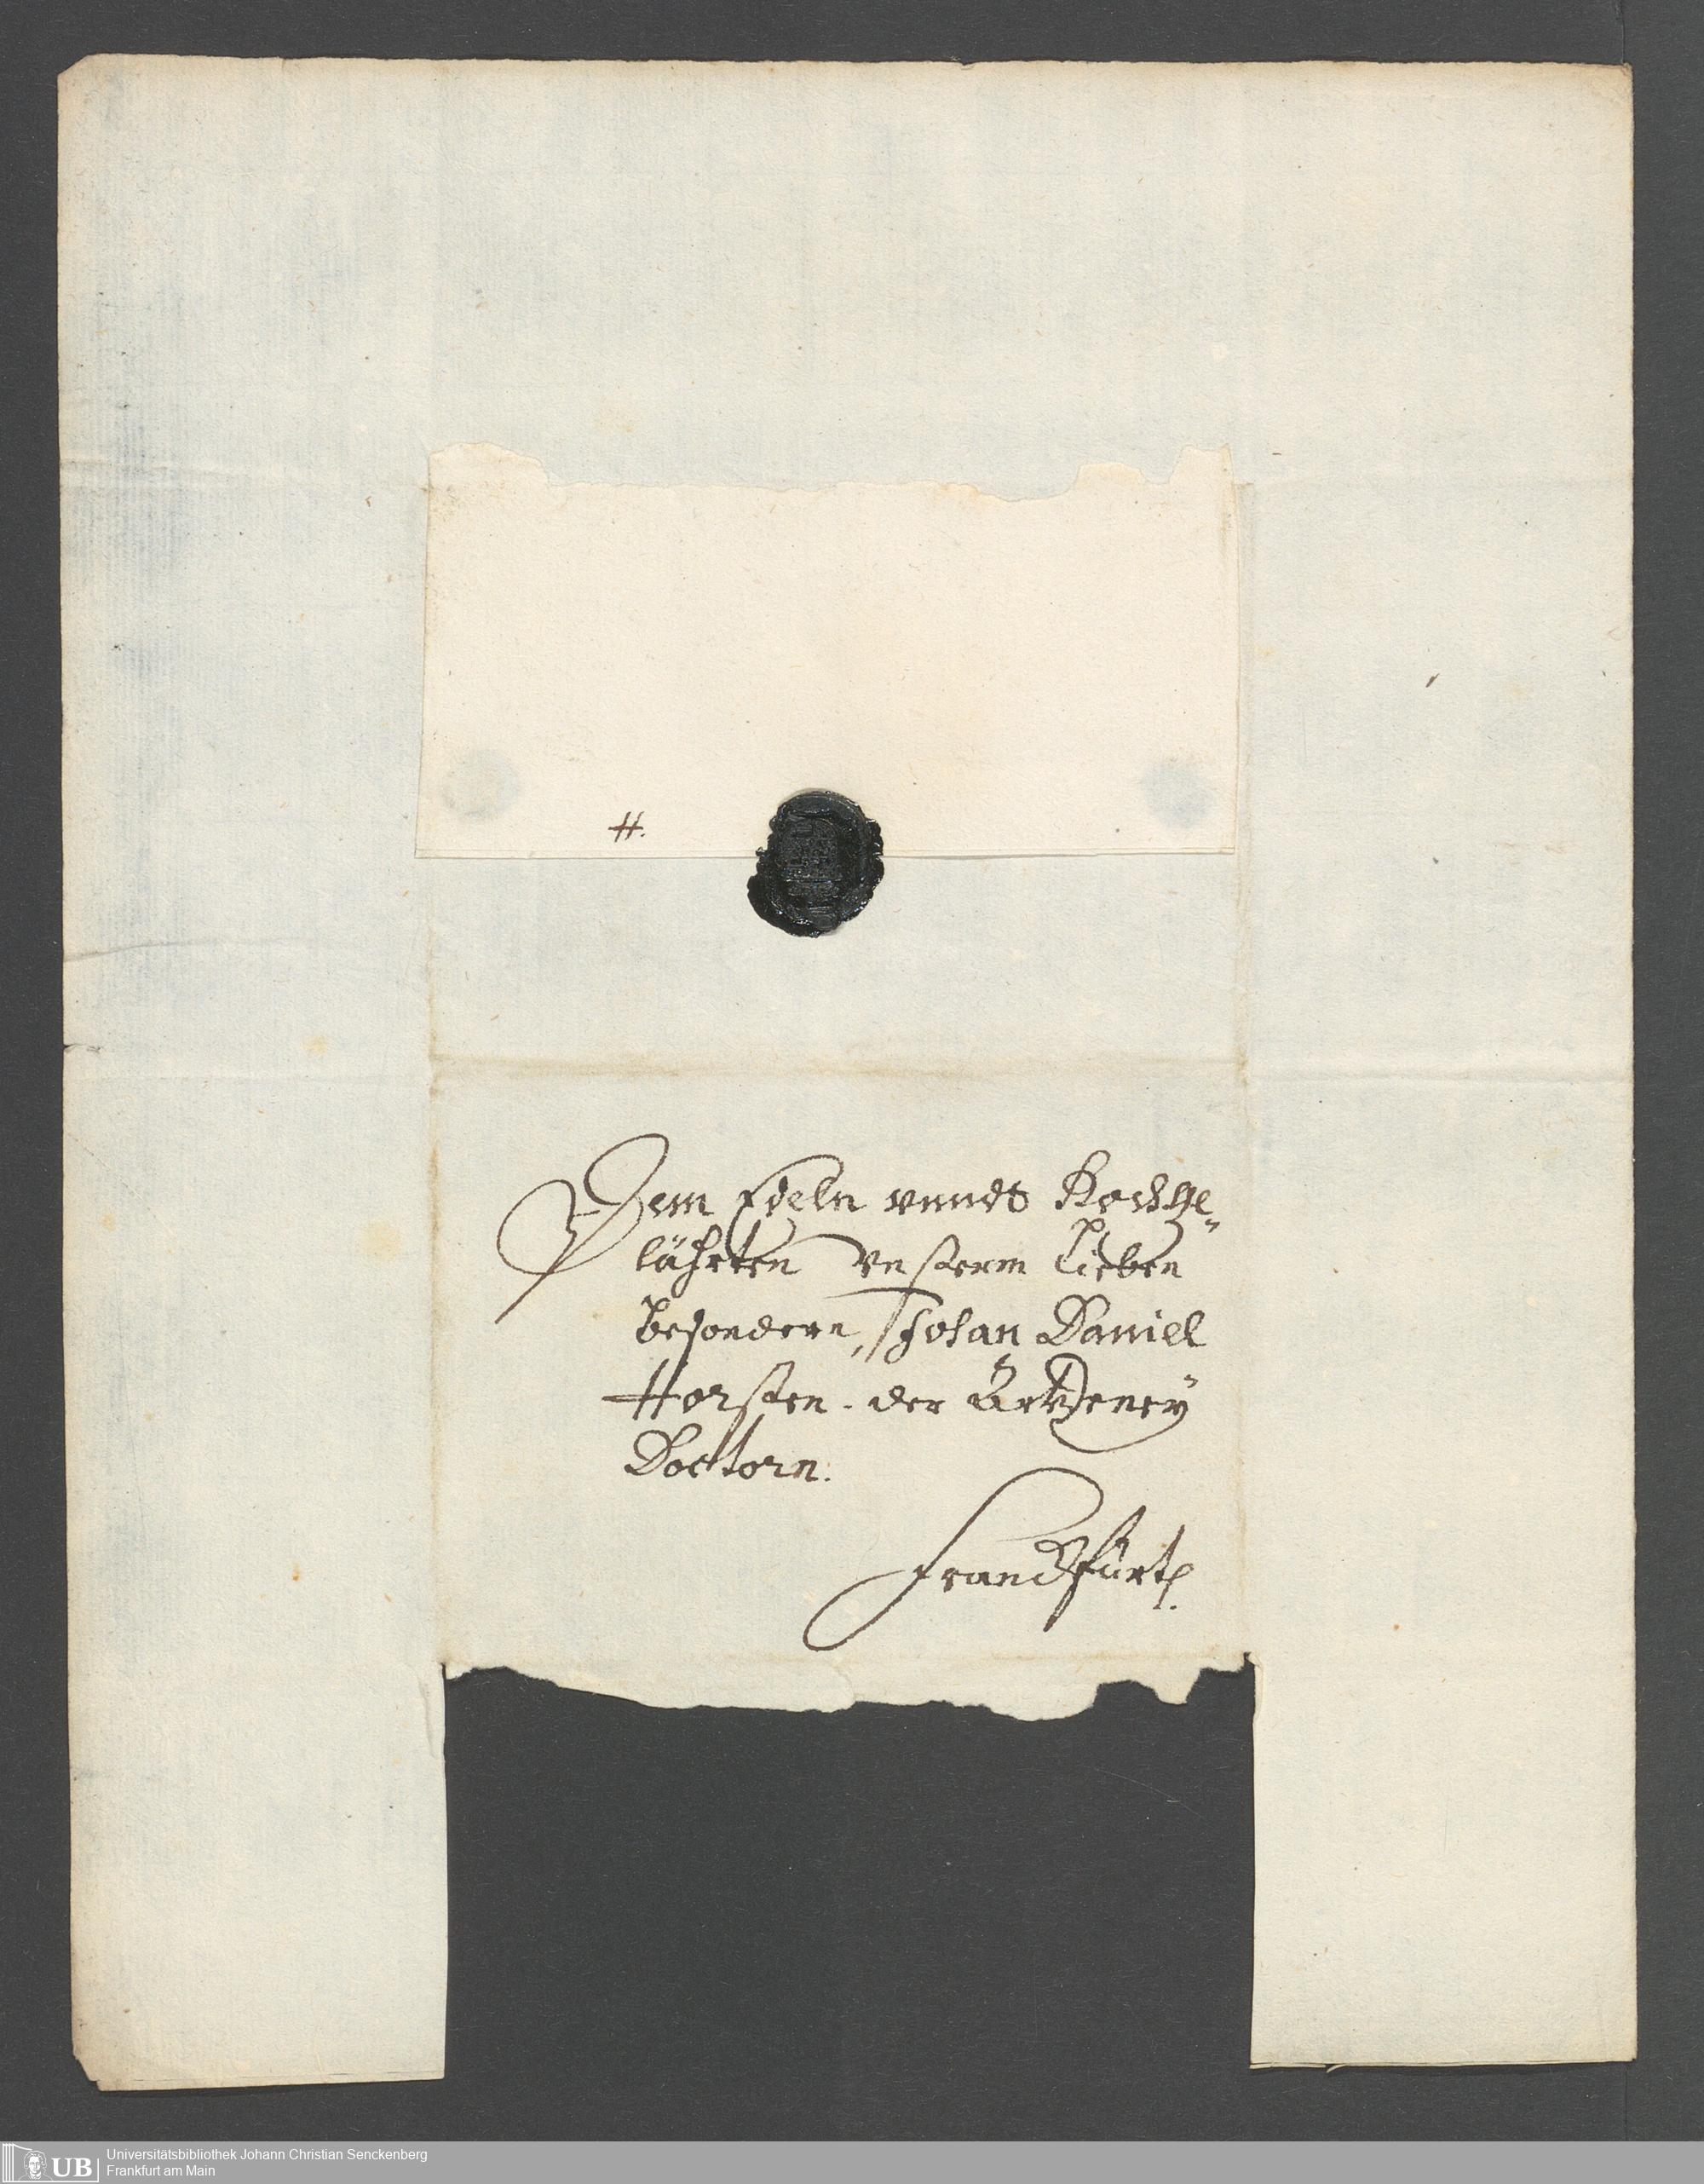 H.
Dem Edeln vnndt Hochge„
lährten Vnserm Lieben
Besondern, Johan Daniel
Horsten. der Artzeney
Doctorn.
Franckfurt.
UB
Universitätsbibliothek Johann Christian Senckenberg
Frankfurt am Main